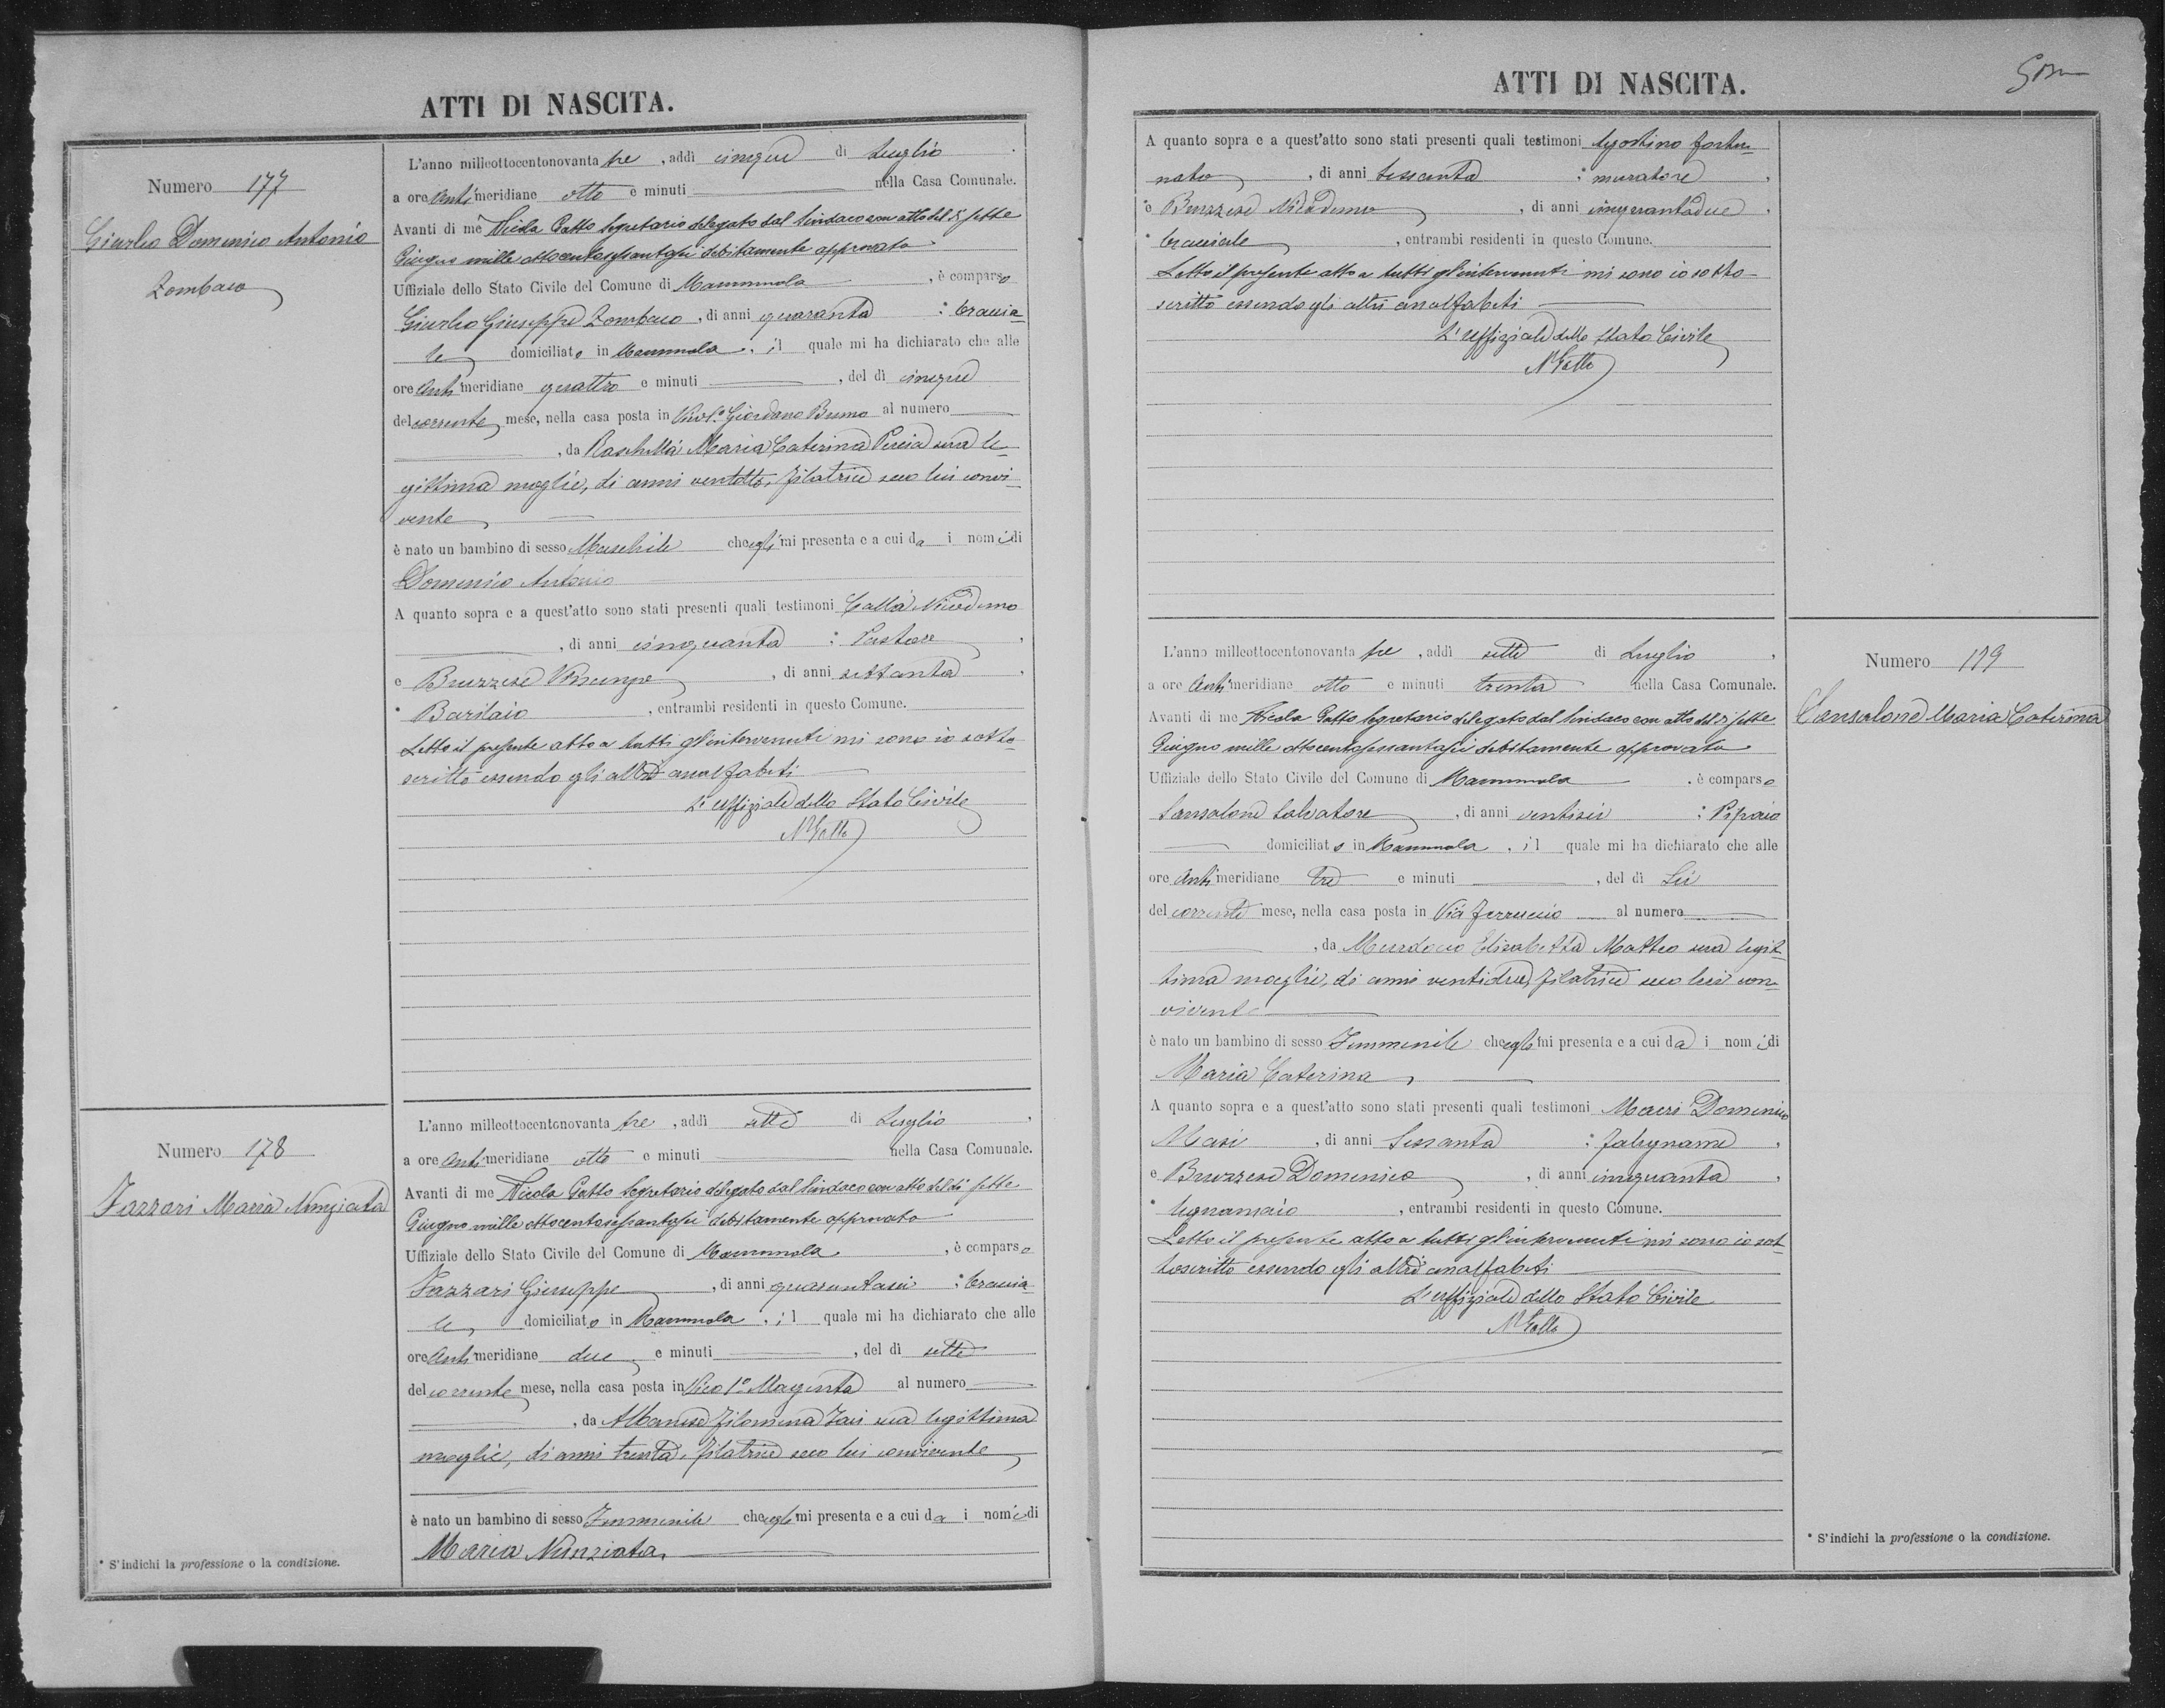 ATTI DI NASCITA.
Numero 177
Giurleo Domenico Antonio
Zombaco
L'anno milleottocentonovanta tre, addì cinque di Luglio
a ore Anti meridiane otto e minuti — nella Casa Comunale.
Avanti di me Nicola Gatto Segretario delegato dal Sindaco con atto del dì sette
Giugno mille ottocentosessantasei debitamente approvato
Uffiziale dello Stato Civile del Comune di Mammola, è comparso
Giurleo Giuseppe Zombaco, di anni quaranta : braccia-
le domiciliato in Mammola, il quale mi ha dichiarato che alle
ore Anti meridiane quattro e minuti —, del dì cinque
del corrente mese, nella casa posta in Vico 1.° Giordano Bruno al numero —
—, da Raschellà Maria Caterina sua le-
gittima moglie, di anni ventotto, filatrice seco lui convi-
vente —
è nato un bambino di sesso Maschile che egli mi presenta e a cui da i nomi di
Domenico Antonio
A quanto sopra e a quest'atto sono stati presenti quali testimoni Callà Nicodemo
—, di anni cinquanta : Pastore,
e Bruzzese Vincenzo, di anni settanta,
* Barilaio, entrambi residenti in questo Comune.
Letto il presente atto a tutti gl'intervenuti mi sono io sotto-
scritto essendo gli altri analfabeti —
L'uffiziale dello Stato Civile
N Gatto
Numero 178
Fazzari Maria Nunziata
L'anno milleottocentonovanta tre, addì sette di Luglio,
a ore Anti meridiane otto e minuti — nella Casa Comunale.
Avanti di me Nicola Gatto Segretario delegato dal Sindaco con atto del dì sette
Giugno mille ottocentosessantasei debitamente approvato
Uffiziale dello Stato Civile del Comune di Mammola, è comparso
Fazzari Giuseppe, di anni quarantasei : braccia-
le, domiciliato in Mammola, il quale mi ha dichiarato che alle
ore Anti meridiane due e minuti —, del dì sette
del corrente mese, nella casa posta in Vico 1° Magenta al numero —
—, da Albanese Filomena sua legittima
moglie, di anni trenta, filatrice seco lui convivente
—
è nato un bambino di sesso Femminile che egli mi presenta e a cui da i nomi di
Maria Nunziata. —
* S'indichi la professione o la condizione.
ATTI DI NASCITA.
A quanto sopra e a quest'atto sono stati presenti quali testimoni Agostino Fortu-
nato, di anni sessanta : muratore,
e Bruzzese Nicodemo, di anni cinquantadue,
* bracciale, entrambi residenti in questo Comune.
Letto il presente atto a tutti gl'intervenuti mi sono io sotto-
scritto essendo gli altri analfabeti —
L'uffiziale dello Stato Civile
N Gatto
L'anno milleottocentonovanta tre, addì sette di Luglio,
a ore Anti meridiane otto e minuti trenta nella Casa Comunale.
Avanti di me Nicola Gatto Segretario delegato dal Sindaco con atto del dì sette
Giugno mille ottocentosessantasei debitamente approvato
Uffiziale dello Stato Civile del Comune di Mammola, è comparso
Sansalone Salvatore, di anni ventisei : Pipaio
— domiciliato in Mammola, il quale mi ha dichiarato che alle
ore Anti meridiane tre e minuti —, del dì Sei
del corrente mese, nella casa posta in Via Ferruccio al numero —
—, da Murdocco Elisabetta Matteo sua legit-
tima moglie, di anni ventidue, filatrice seco lui con-
vivente —
è nato un bambino di sesso Femminile che egli mi presenta e a cui da i nomi di
Maria Caterina —
A quanto sopra e a quest'atto sono stati presenti quali testimoni Macrì Domenico
Masi, di anni Sessanta : falegname,
e Bruzzese Domenico, di anni cinquanta,
* legnamaio, entrambi residenti in questo Comune.
Letto il presente atto a tutti gl'intervenuti mi sono io sot-
toscritto essendo gli altri analfabeti —
L'uffiziale dello Stato Civile
N Gatto
Numero 179
Sansalone Maria Caterina
* S'indichi la professione o la condizione.